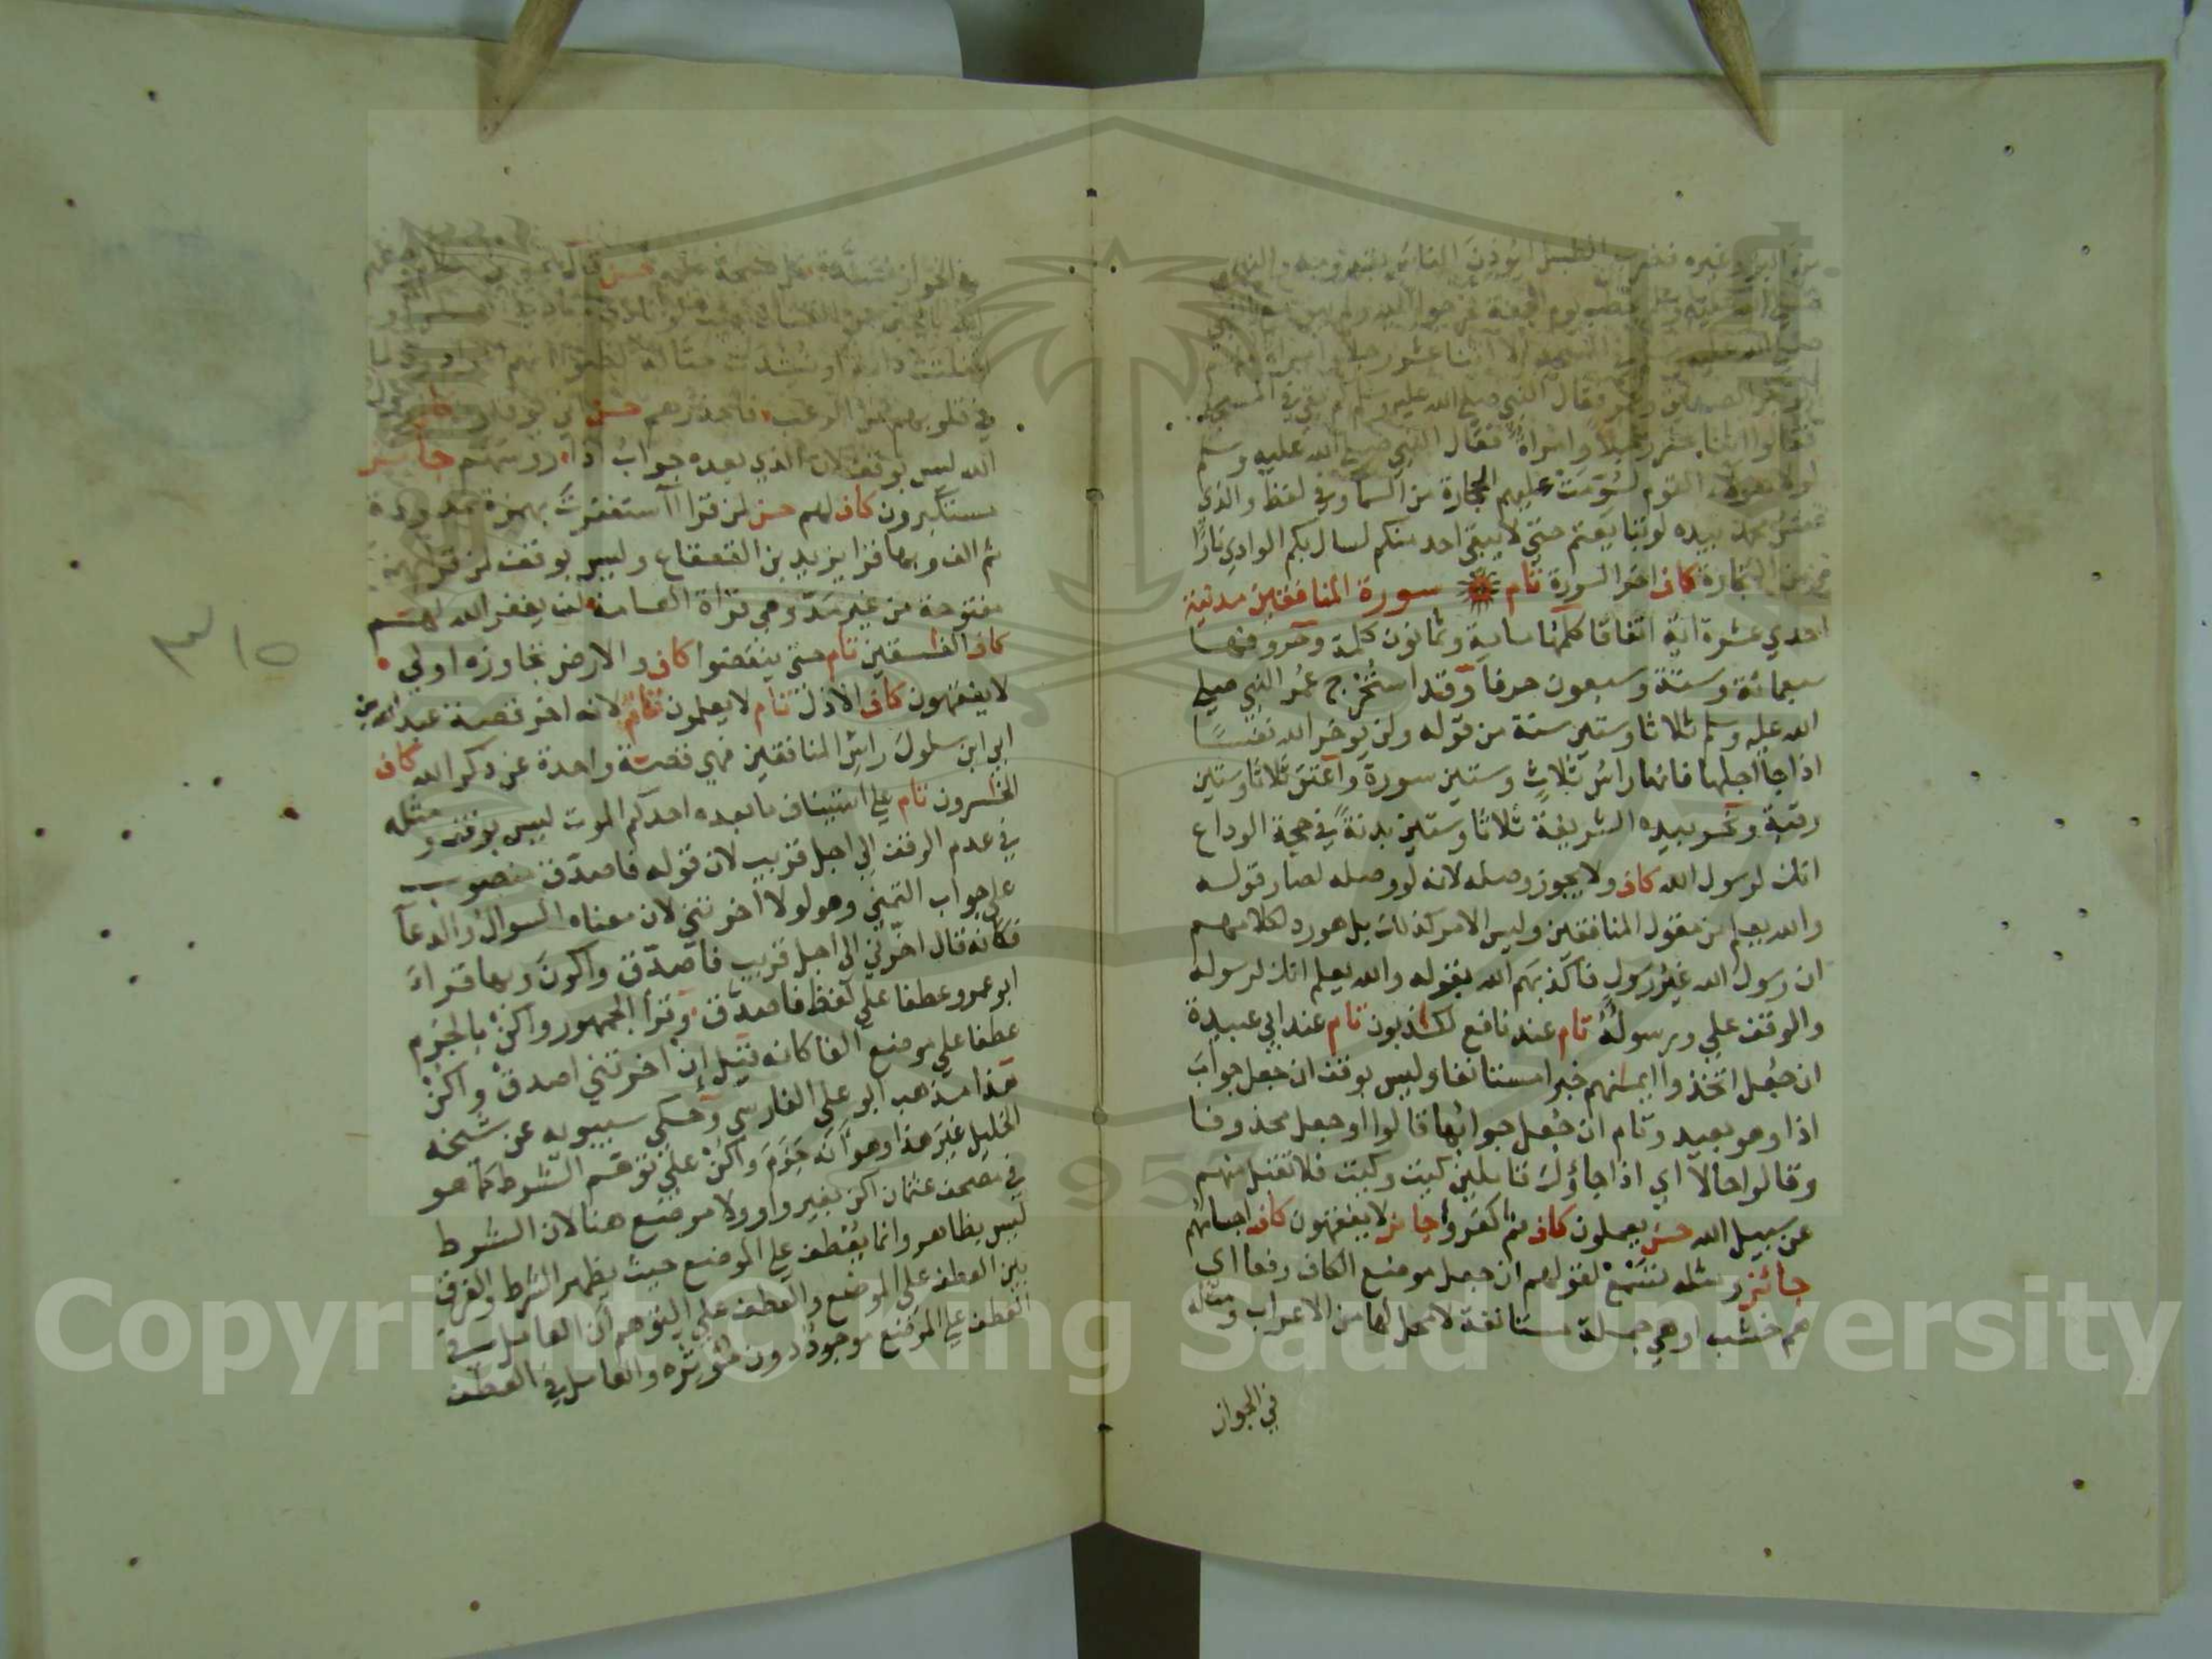 من البر وغيره فضرب الطبل ليؤذن الناس بقدومه والنبي
صلى الله عليه وسلم يخطب يوم الجمعة فخرجوا اليه ولم يبق مع النبي
صلى الله عليه وسلم في المسجد الا اثنا عشر رجلا وامراة
فقال النبي صلى الله عليه وسلم كم بقي في المسجد
فقالوا اثنا عشر رجلا وامراة فقال النبي صلى الله عليه وسلم
لولا هؤلاء القوم لسومت عليهم الحجارة من السما وفي لفظ والذي
نفس محمد بيده لو تتابعتم حتى لا يبقى احد منكم لسال بكم الوادي نارا
ومن التجارة كاف اخر السورة تام سورة المنافقين مدنية
احدي عشرة اية اتفاقا كلمها ماية وثمانون كلمة وحروفها
سبعمائة وستة وسبعون حرفا وقد استخرج عمر النبي صلي
الله عليه وسلم ثلاثا وستين سنة من قوله ولن يوخر الله نفسا
اذا جا اجلها فانها راس ثلاث وستين سورة واعتق ثلاثا وستين
رقبة ونحر بيده الشريفة ثلاثا وستين بدنة في حجة الوداع
انك لرسول الله كاف ولا يجوز وصله لانه لو وصله لصار قوله
والله يعلم من مقول المنافقين وليس الامر كذلك بل هو رد لكلامهم
ان رسول الله غير رسول فاكذبهم الله بقوله والله يعلم انك لرسوله
والوقف علي ورسوله تام عند نافع لكذبون تام عند ابي عبيدة
ان جعل اتخذوا ايمنهم خبرا مستانفا وليس بوقف ان جعل جواب
اذا وهو بعيد وتام ان جعل جوابها قالوا او جعل محذوفا
وقالوا حالا اي اذا جاؤك قايلين كيت وكيت فلا تقبل منهم
عن سبيل الله حسن يعملون كاف ثم كفروا جايز لا يفقهون كاف اجسامهم
جائز ومثله تسمع لقولهم ان جعل موضع الكاف رفعا اي
هم خشب او هي جملة مستانفة لا محل لها من الاعراب ومثله
في الجواز
في الجواز مسندة كل صيحة عليهم حسن
في قلوبهم من الرعب فاحذرهم حسن
الله ليس بوقف لان الذي بعده جواب اذا روسهم جايز
مستكبرون كاف لهم حسن لمن قرا آستغفرت بهمزة ممدودة
ثم الف وبها قرا يزيد بن القعقاع وليس بوقف لمن قرا بهمزة
مفتوحة من غير مد وهي قراة العامة لن يغفر الله لهم
كاف الفسقين تام حتى ينفضوا كاف والارض تجاوزه اولي
لا يفقهون كاف الاذل تام لا يعلمون تام لانه اخر قصة عبد الله بن
ابي ابن سلول راس المنافقين فهي قصة واحدة عن ذكر الله كاف
الخسرون تام علي استيناف ما بعده احدكم الموت ليس بوقف ومثله
في عدم الوقف الي اجل قريب لان قوله فاصدق منصوب
علي جواب التمني وهو لولا اخرتني لان معناه السوال والدعآ
فكانه قال اخرني الي اجل قريب فاصدق واكون وبها قراء
ابو عمرو عطفا علي لفظ فاصدق وقرا الجمهور واكن بالجزم
عطفا علي موضع الفا كانه قيل ان اخرتني اصدق واكن
هذا مذهب ابو علي الفارسي وحكي سيبويه عن شيخه
الخليل غير هذا وهو انه جزم واكن علي توهم الشرط كما هو
في مصحف عثمان اكن بغير واو ولا موضع هنا لان الشرط
ليس بظاهر وانما يعطف علي الموضع حيث يظهر الشرط والفرق
بين العطف علي الموضع والعطف علي التوهم ان العامل في
العطف علي الموضع موجود دون مؤثره والعامل في العطف
٣١٥
Copyright © King Saud University